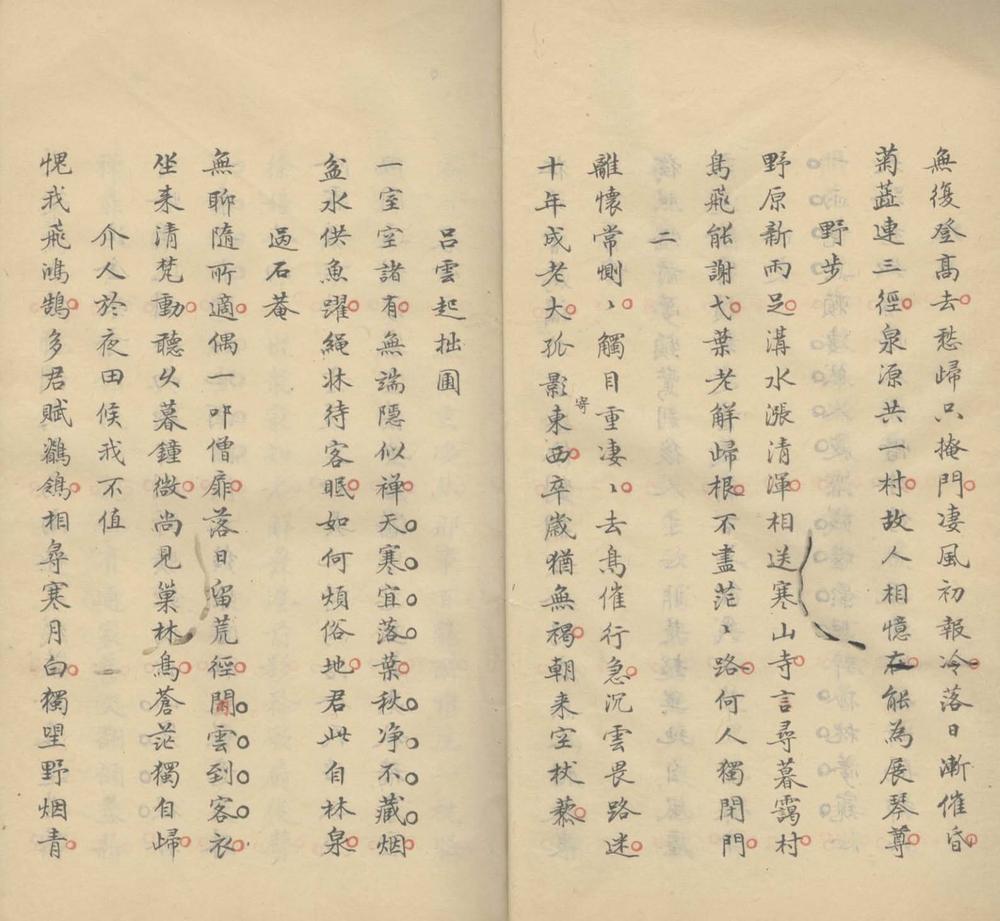 無復登高去愁歸只掩門凄風初報冷落日漸催昏
菊蕋連三徑泉源共一村故人相憶在能為展琴尊
野步
野原新雨足溝水漲清渾相送寒山寺言尋暮靄村
鳥飛能謝弋葉老解歸根不盡茫〻路何人獨閉門
二
離懷常惻〻觸目重凄〻去鳥催行急沉雲畏路迷
十年成老大孤影寄東西卒歲猶無褐朝来空杖藜
呂雲起拙圃
一室空諸有無端隱似禅天寒宜落葉秋净不藏烟
盆水供魚躍繩牀待客眠如何煩俗地君此自林泉
過石菴
無聊隨所適偶一叩僧扉落日留荒徑閒雲到客衣
坐来清梵動聽久暮鐘微尚見巢林鳥蒼茫獨自歸
介人於夜田候我不值
愧我飛鴻鵠多君賦鶺鴒相尋寒月白獨望野烟青